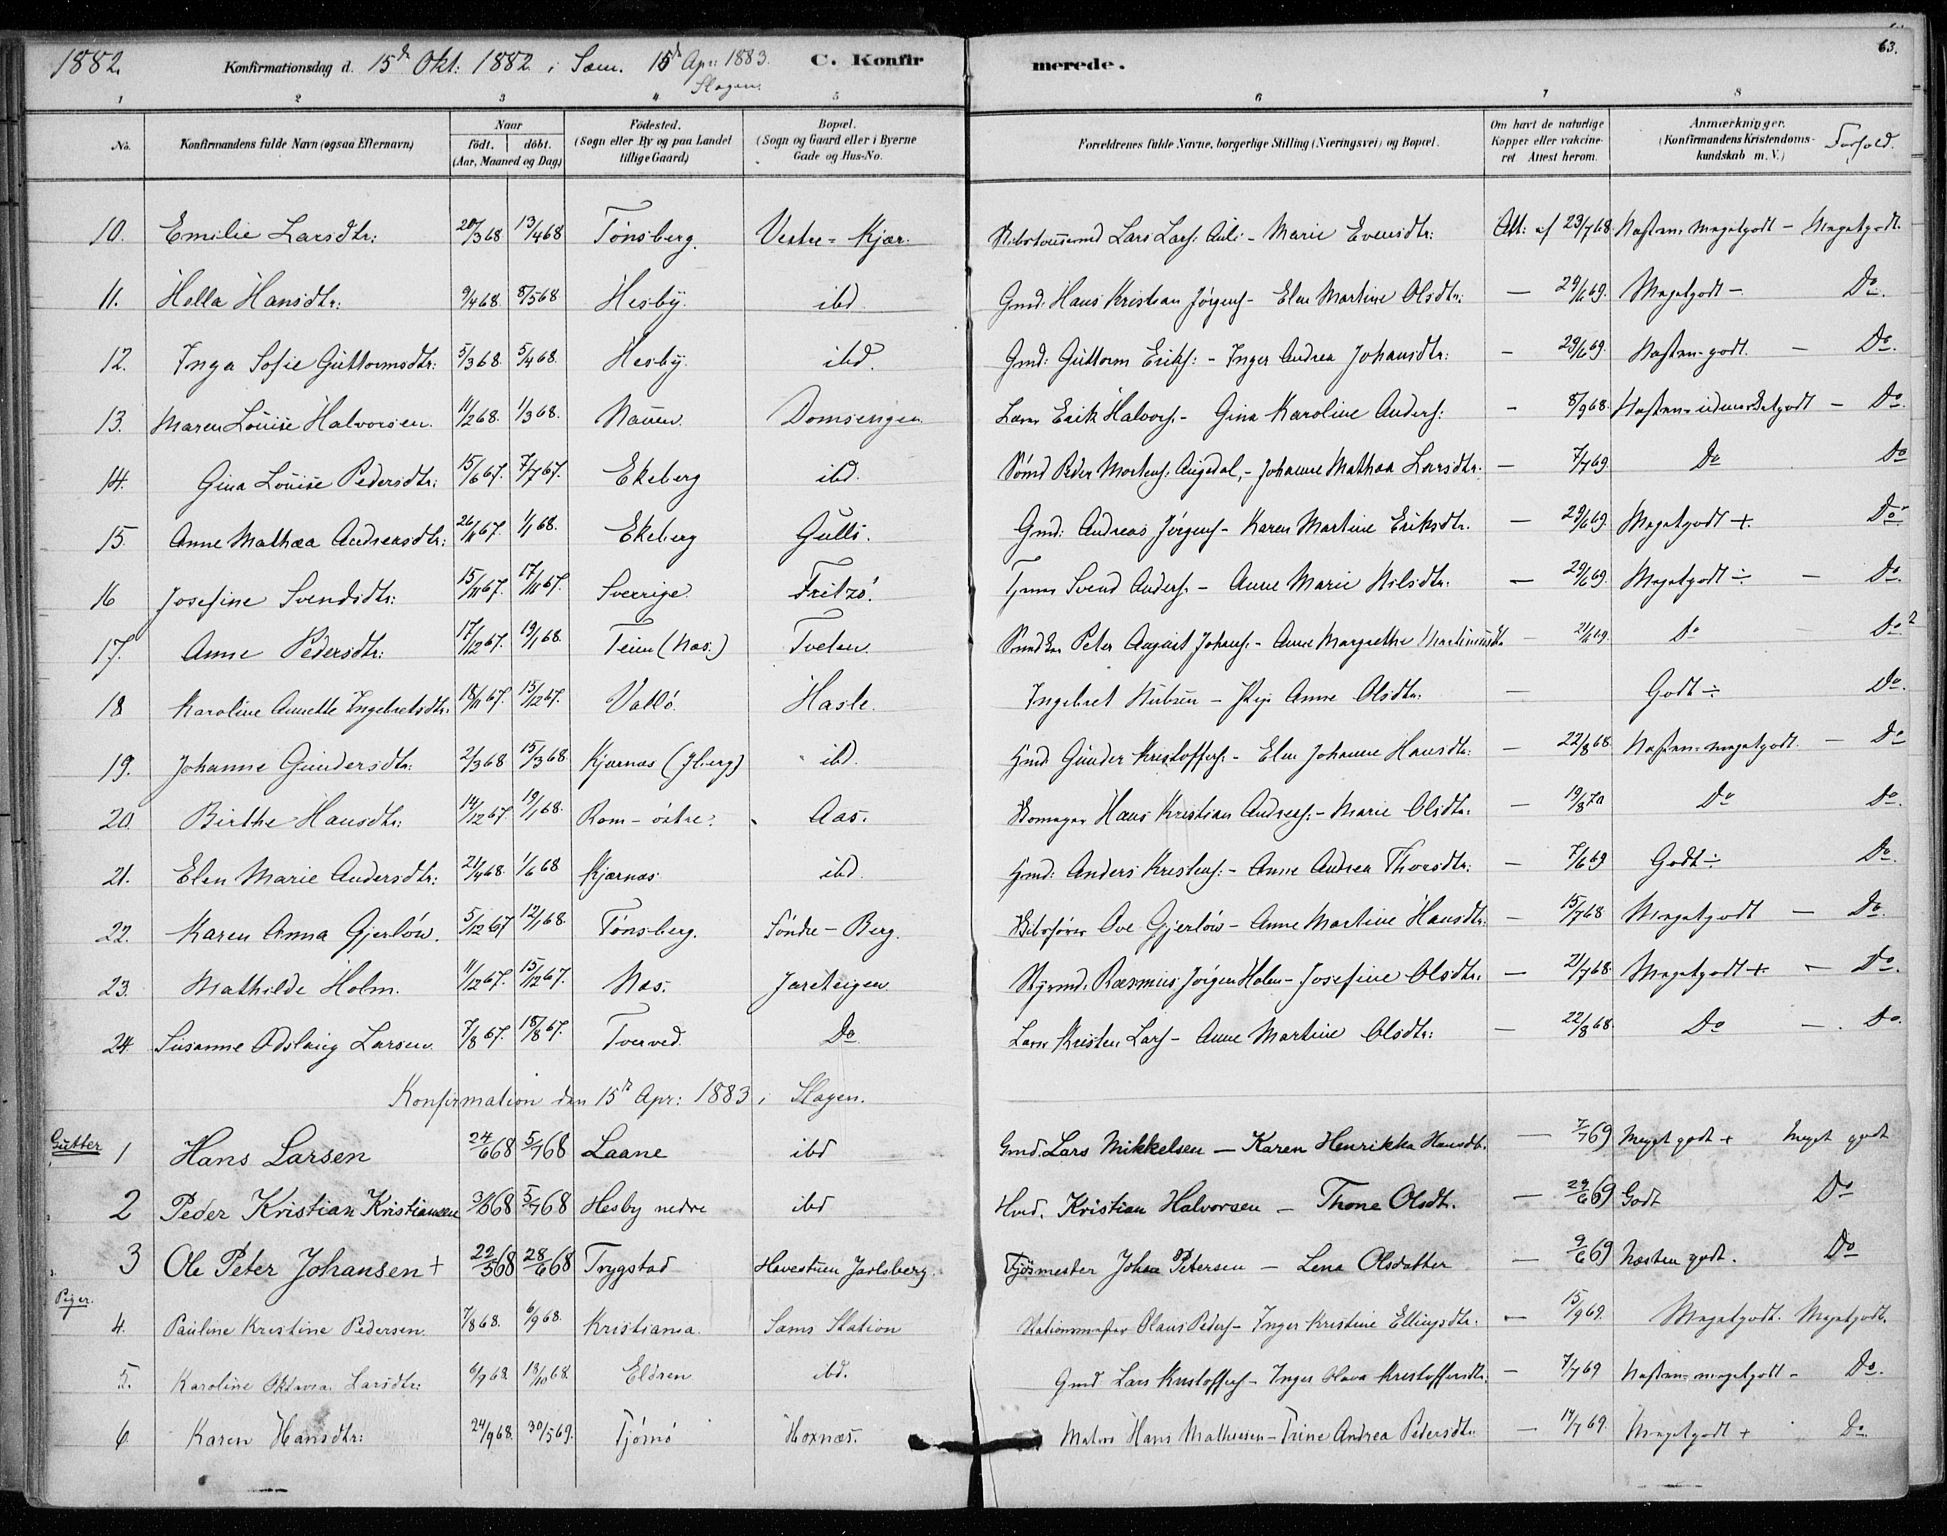 63.
1882. Konfirmationsdag d. 15de Okt: 1882 i Sem. 15de Apr: 1883. C. Konfirmerede.
Slagen.
1 2 3 4 5 6 7 8
No. Konfirmandens fulde Navn (ogsaa Efternavn) Naar født. døbt. (Aar, Maaned og Dag) Fødested. (Sogn eller By og paa Landet tillige Gaard) Bopæl. (Sogn og Gaard eller i Byerne Gade og Hus-No. Forældrenes fulde Navne, borgerlige Stilling (Næringsvei) og Bopæl. Om havt de naturlige Kopper eller vakcineret Attest herom. Anmærkninger. (Konfirmandens Kristendomskundskab m. V.) Forhold.
10. Emilie Larsdtr: 20/3 68 13/4 68 Tønsberg. Vestre-Kjær. Lars Lars: Auli - Marie Evensdtr: Att: af 23/7 68 Næsten-Megetgodt - Megetgodt.
11. Hella Hansdtr: 9/4 68 8/5 68 Hesby. ibd. Gmd: Hans Kristian Jørgens - Elen Martine Olsdtr: — 29/6 69. Megetgodt - Do.
12. Inga Sofie Guttormsdtr: 5/3 68 5/4 68. Hesby. ibd. Gmd: Guttorm Eriks: - Inger Andrea Johansdtr: - 29/6 69. Næsten-godt. — Do.
13. Maren Louise Halvorsen. 11/2 68. 1/3 68. Nauen. Domsengen. Lærer Erik Halvors. - Gina Karoline Anders: - 8/9 68. - Do.
14. Gina Louise Pedersdtr: 15/6 67. 7/7 67. Ekeberg ibd. Peder Mortens: - Johanne Mathea Larsdtr. — 7/7 69. Do Do
15. Anne Mathæa Andreasdtr: 26/11 67. 1/1 68. Ekeberg Gulli. Gmd: Andreas Jørgens - Karen Martine Eriksdtr. — 29/6 69. Megetgodt +. Do
16 Josefine Svendsdtr: 15/11 67. 17/11 67. Sverrige. Fritzø. Svend Anders. - Anne Marie Nilsdtr. — 29/6 69. Megetgodt ÷ — Do.
17. Anne Pedersdtr: 17/12 67. 19/1 68. Teien (Næs.) Tveten. Peter August Johans. - Anne Margrethe Martiniusdtr — Do Do.
18 Karoline Annette Ingebretsdtr. 18/11 67. 15/12 67. Valø. Hasle. Ingebret Nilsen - Anne Olsdtr. — Godt ÷ Do.
19. Johanne Gundersdtr: 2/3 68 15/3 68. Kjærnæs ibd. Gmd: Gunder Kristoffers. - Elen Johanne Hansdtr: — 22/8 68. Næsten-megetgodt. — Do
20 Birthe Hansdtr: 14/12 67. 19/1 68. Rom-østre. Aas. Skomager Hans Kristian Andreas: - Marie Olsdtr. — 19/8 70 Do Do.
21. Elen Marie Andersdtr: 21/4 68. 1/6 68 Kjærnæs. ibd. Gmd: Anders Kristens: - Anne Andrea Thorsdtr: — 7/6 69 Godt ÷ Do.
22. Karen Anna Gjerløw. 5/12 67 12/1 68. Tønsberg. Søndre-Berg. Skibsfører Ove Gjerløw - Anne Martine Hansdtr: — 15/7 68 Megetgodt — Do.
23. Mathilde Holm. 11/12 67. 15/12 67. Næs. Jareteigen Styrmd. Rasmus Jørgen Holm - Josefine Olsdtr. — 21/7 68. Megetgodt + - Do.
24. Susanne Odslaug Larsen 7/8 67. 18/8 67. Tverved. Do Lærer Kristen Lars - Anne Martine Olsdtr: — 22/8 68. Do — Do.
Konfirmation den 15de Apr: 1883 i Slagen.
Gutter 1 Hans Larsen 24/6 68 5/7 68 Laane ibd Gmd. Lars Mikkelsen — Karen Henrikka Hansdt. — 7/7 69 Meget godt + Meget godt
2 Peder Kristian Kristiansen 5/7 68 Hesby nedre ibd Kristian Halvorsen — Thone Olsdt. — 29/6 69 Godt Do
3 Ole Peter Johansen + 22/5 68 28/6 68 Trygstad Havestuen Jarlsberg. Fjøsmester Johan Petersen — Lena Olsdatter — 9/6 69 Næsten godt. Do
Piger. 4. Pauline Kristine Pedersen. 7/8 68. 6/9 68. Kristiania. Sems Station Stationsmester Olaus Peders - Inger Kristine Ellingsdtr. — 15/9 69. Megetgodt. Megetgodt.
5. Karoline Oktavia Larsdtr: 6/9 68 18/10 68. Eldsen ibd. Gmd Lars Kristoffers - Inger Olava Kristoffersdtr. — 7/7 69 Næsten-megetgodt - Do.
6. Karen Hansdtr: 24/9 68. 30/5 69. Tjømø Hoxnæs. Matros Hans Mathisen - Trine Andrea Pedersdtr — 14/7 69. Megetgodt + Do